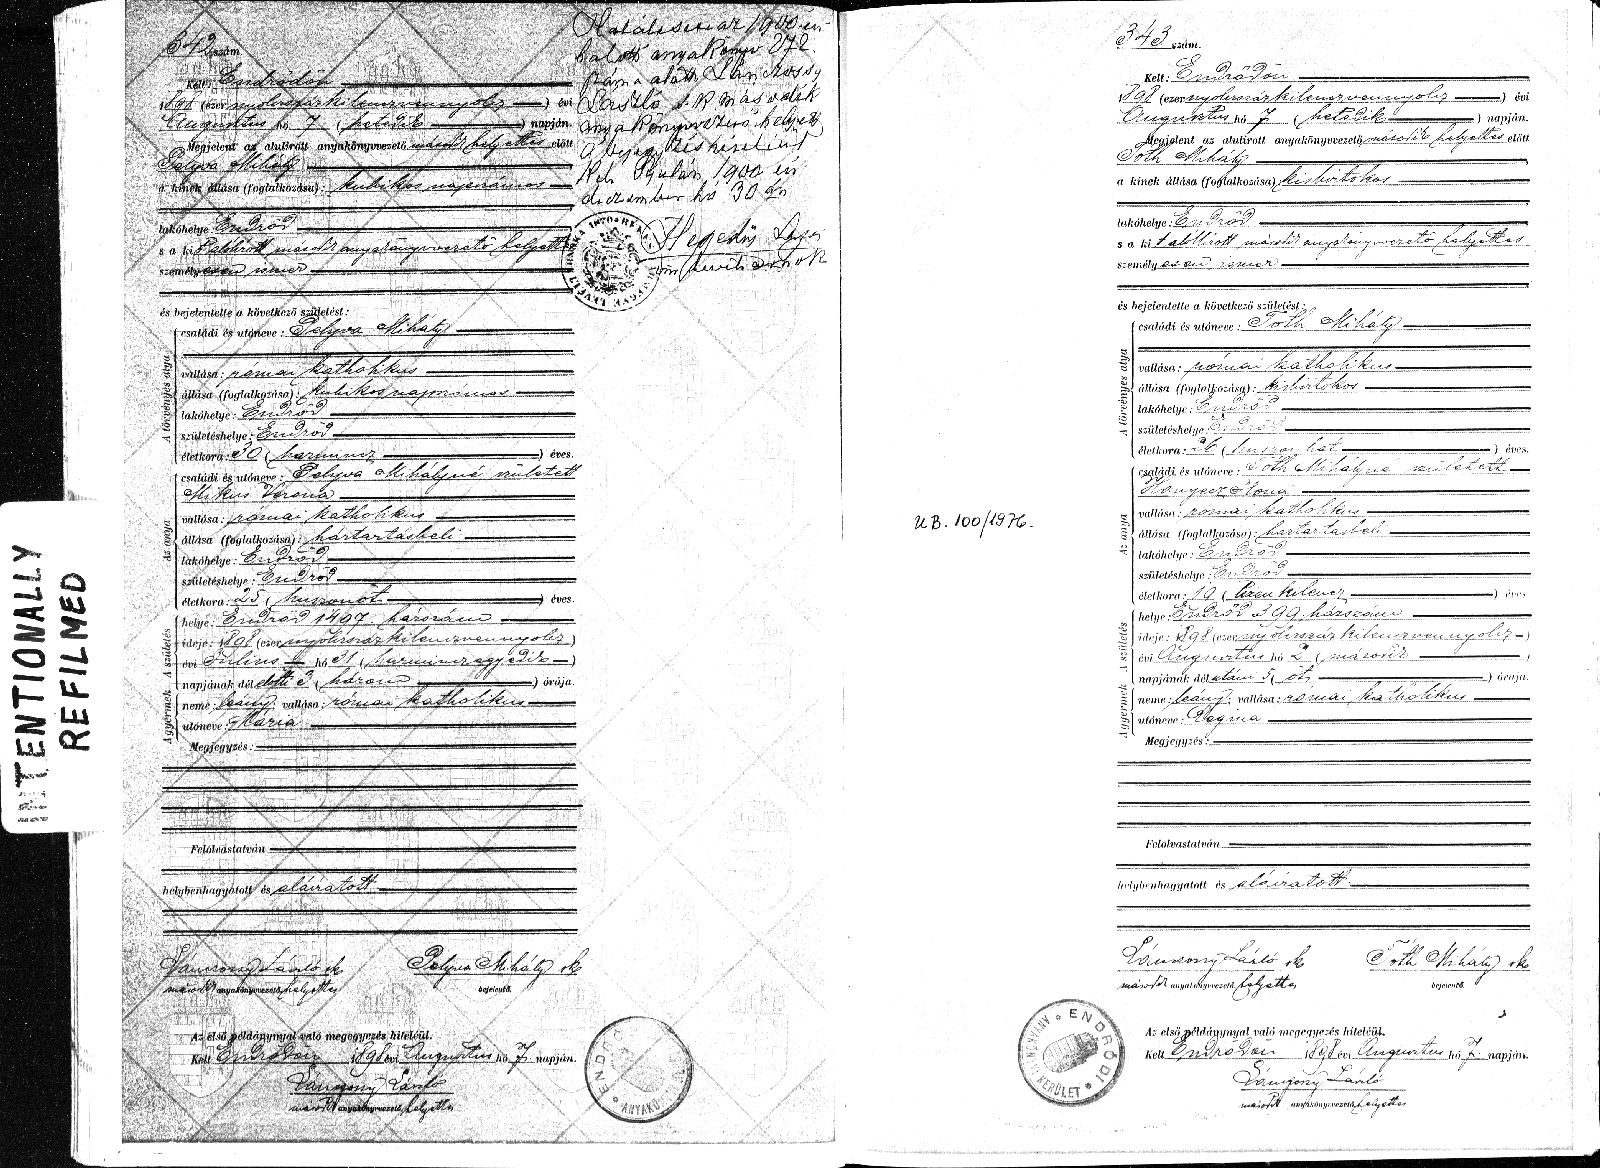 INTENTIONALLY
REFILMED
342 szám.
Kelt: Endrődön
1898 (ezer nyolcszázkilenczvennyolcz) évi
Augusztus hó 7 (hetedik) napján.
Megjelent az alulirott anyakönyvvezető második helyettes előtt
Pelyva Mihály
a kinek állása (foglalkozása): kubikos napszámos
lakóhelye: Endrőd
s a kit alólírott második anyakönyvvezető helyettes
személyesen ismer
és bejelentette a következő születést:
A törvényes atya
családi és utóneve: Pelyva Mihály
vallása: római katholikus
állása (foglalkozása): kubikos napszámos
lakóhelye: Endrőd
születéshelye: Endrőd
életkora: 30 (harmincz) éves.
Az anya
családi és utóneve: Pelyva Mihályné született
Mikus Verona
vallása: római katholikus
állása (foglalkozása): háztartásbeli
lakóhelye: Endrőd
születéshelye: Endrőd
életkora: 25 (huszonöt) éves.
A születés
helye: Endrőd 1497 házszám
ideje: 1898 (ezer nyolcszázkilenczvennyolcz)
évi Julius hó 31 (harminczegyedik)
napjának dél előtti 3 (három) órája.
A gyermek
neme: leány; vallása: római katholikus
utóneve: Mária
Megjegyzés:
Felolvastatván
helybenhagyatott és aláíratott
Pelyva Mihály sk
második anyakönyvvezető helyettes
bejelentő.
Az első példánynyal való megegyezés hiteléül.
Kelt Endrődön 1898 évi Augusztus hó 7. napján.
László
második anyakönyvvezető helyettes
ENDRŐDI
ANYAKÖ
1900 én
halotti anyakönyv 272.
László s.k. második
anyakönyvvezető helyettes
Kelt Gyulán, 1900 évi
deczember hó 30 án
Hegedűs
343 szám.
Kelt: Endrődön
1898 (ezer nyolcszázkilenczvennyolcz) évi
Augusztus hó 7 (hetedik) napján.
Megjelent az alulirott anyakönyvvezető második helyettes előtt
Tóth Mihály
a kinek állása (foglalkozása) kisbirtokos
lakóhelye: Endrőd
s a kit alólírott második anyakönyvvezető helyettes
személyesen ismer
és bejelentette a következő születést:
A törvényes atya
családi és utóneve: Tóth Mihály
vallása: római katholikus
állása (foglalkozása): kisbirtokos
lakóhelye: Endrőd
születéshelye: Endrőd
életkora: 26 (huszonhat) éves.
Az anya
családi és utóneve: Tóth Mihályné született
Hanyecz Ilona
vallása: római katholikus
állása (foglalkozása): háztartásbeli
lakóhelye: Endrőd
születéshelye: Endrőd
életkora: 19 (tizenkilencz) éves.
A születés
helye: Endrőd 399 házszám
ideje: 1898 (ezer nyolcszázkilenczvennyolcz)
évi Augusztus hó 2 (második)
napjának dél után 5 (öt) órája.
A gyermek
neme: leány; vallása: római katholikus
utóneve: Regina
Megjegyzés:
Felolvastatván
helybenhagyatott és aláíratott
László sk Tóth Mihály sk
második anyakönyvvezető helyettes
bejelentő.
Az első példánynyal való megegyezés hiteléül.
Kelt Endrődön 1898 évi Augusztus hó 7. napján.
László
második anyakönyvvezető helyettes
ENDRŐDI
ANYAKÖNYVI KERÜLET
UB. 100/1976.